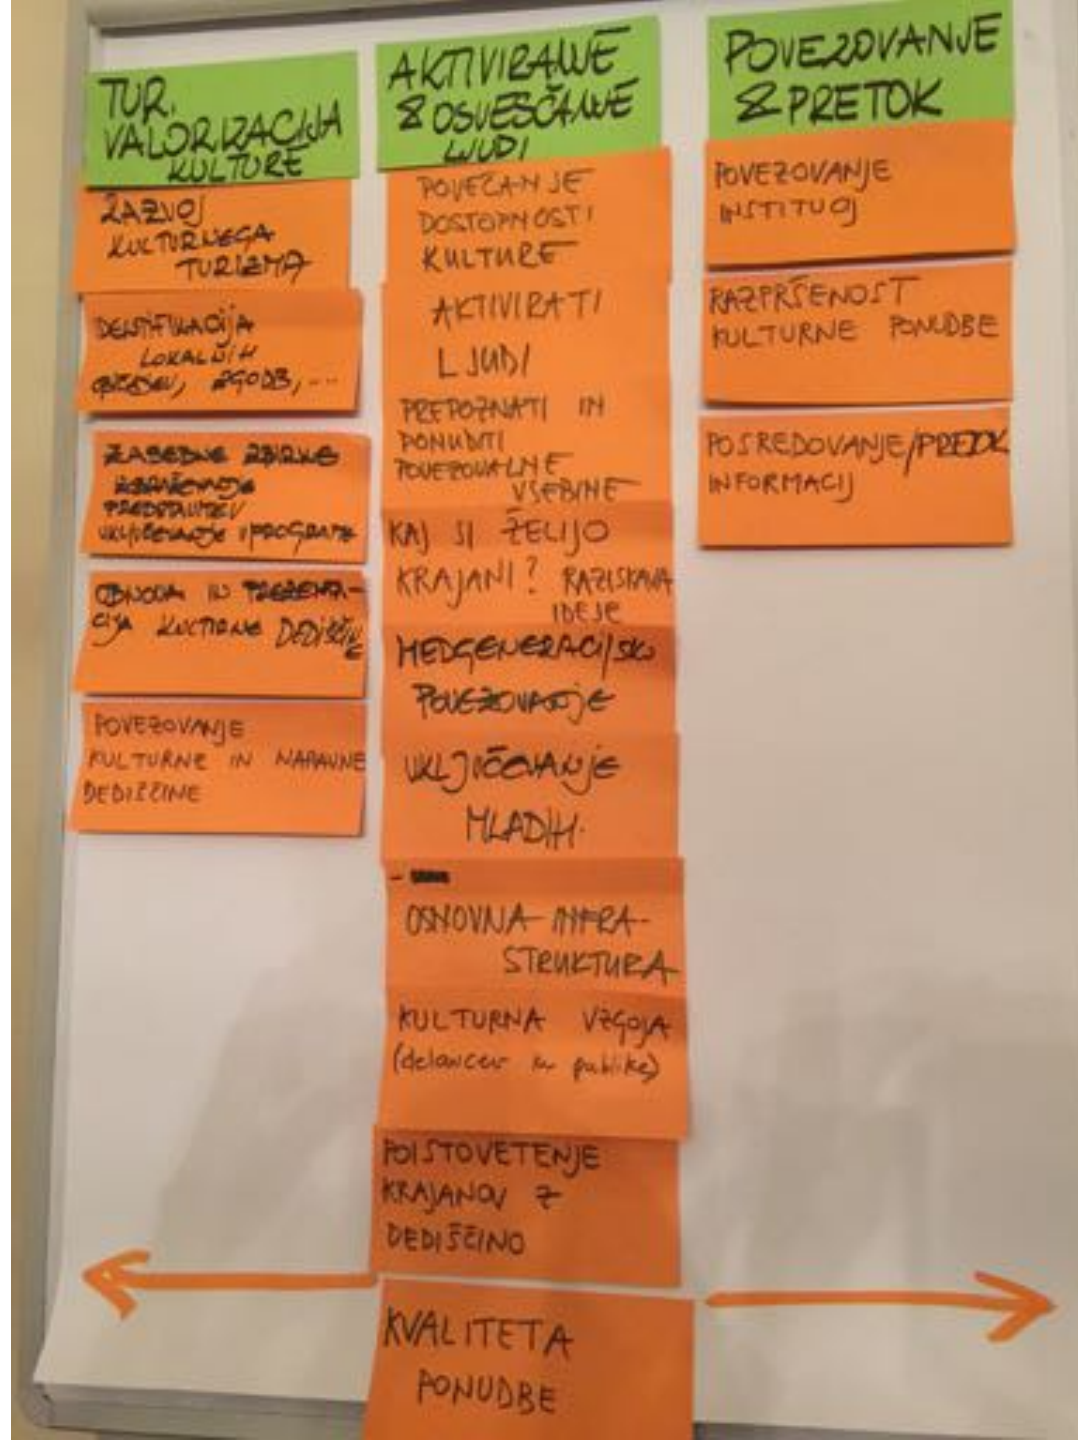 TUR.
VALORIZACIJA
KULTURE
RAZVOJ
KULTURNEGA
TURIZMA
LOKALNIH
ZGODB, ...
ZASEBNE ZBIRKE
PREDSTAVITEV
VKLJUČEVANJE V PROGRAM
OBNOVA IN PREZENTA-
CIJA KULTURNE DEDIŠČINE
POVEZOVANJE
KULTURNE IN NARAVNE
DEDIŠČINE
AKTIVIRANJE
& OSVEŠČANJE
LJUDI
POVEČANJE
DOSTOPNOSTI
KULTURE
AKTIVIRATI
LJUDI
PREPOZNATI IN
PONUDITI
POVEZOVALNE
VSEBINE
KAJ SI ŽELIJO
KRAJANI? RAZISKAVA
IDEJE
MEDGENERACIJSKO
POVEZOVANJE
VKLJUČEVANJE
MLADIH.
OSNOVNA INFRA-
STRUKTURA
KULTURNA VZGOJA
(delavcev in publike)
POISTOVETENJE
KRAJANOV Z
DEDIŠČINO
KVALITETA
PONUDBE
POVEZOVANJE
& PRETOK
POVEZOVANJE
INSTITUCIJ
RAZPRŠENOST
KULTURNE PONUDBE
POSREDOVANJE/PRETOK
INFORMACIJ